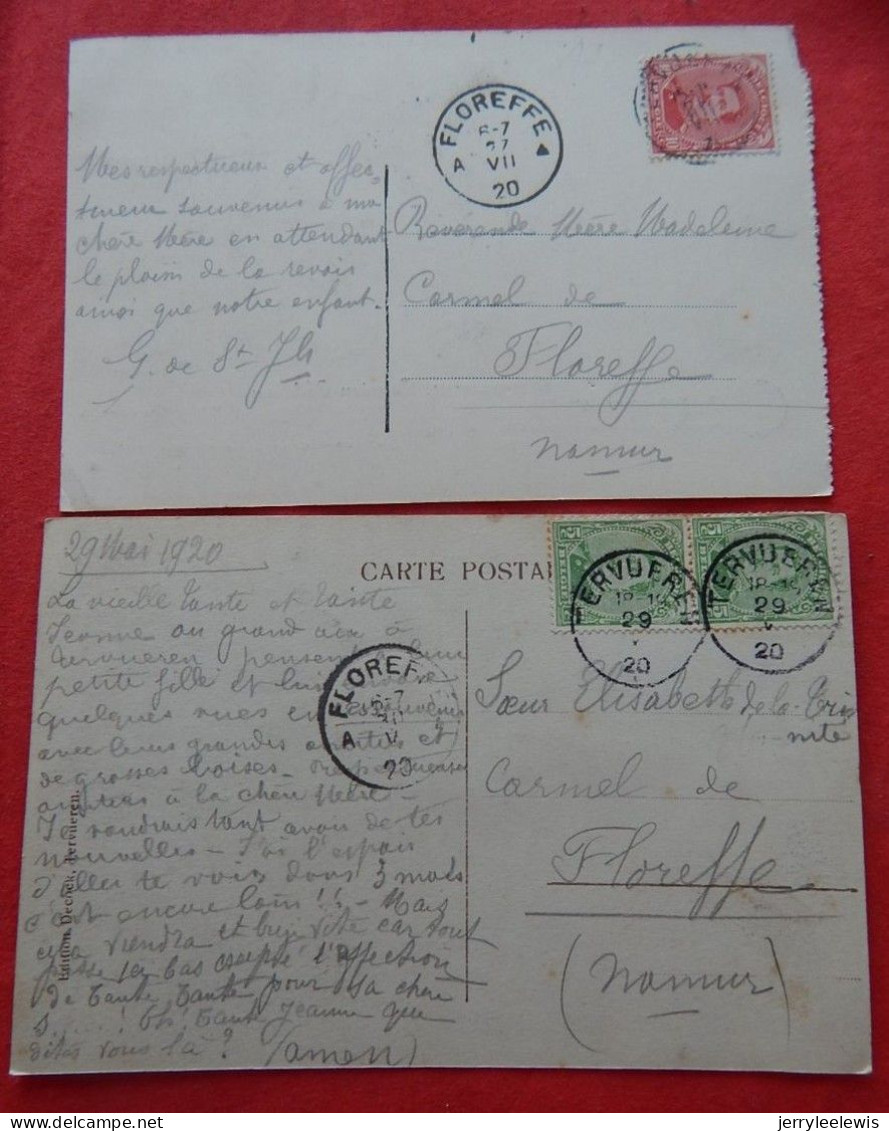 FLOREFFE
6-7
27
A VII
20
Mes respectueux et affec-
tueux souvenirs à ma
chère Mère en attendant
le plaisir de la revoir
ainsi que notre enfant.
G. de St
Révérende Mère Madeleine
Carmel de
Floreffe
Namur
29 Mai 1920
CARTE POSTA
TERVUEREN
29
V
20
TERVUEREN
29
V
20
FLOREF
6-7
A V
20
La vieille tante et tante
Jeanne au grand air à
Tervueren pensent
petite fille et lui
quelques vues en souvenir
avec leurs grandes amitiés et
de grosses
à la chère Mère -
Je voudrais tant avoir de tes
nouvelles - J'ai l'espoir
d'aller te voir dans 3 mois
c'est encore loin !! - Mais
cela viendra et bien vite car tout
passe ici bas excepté l'affection
de tante tante pour sa chère
S......! Oh! tante Jeanne que
dites vous là ? (amen)
Sœur Elisabeth de la Tri
nité
Carmel de
Floreffe
(Namur)
Edition Decock, Tervueren.
delcampe.net
jerryleelewis